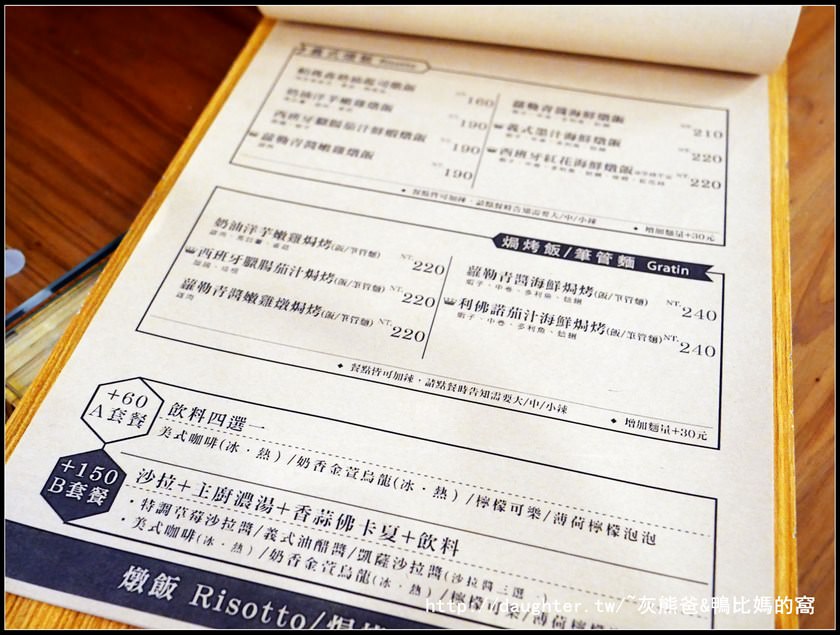 義式燉飯 Risotto
奶油洋芋嫩雞燉飯
西班牙臘腸茄汁鮮蝦燉飯
蘿勒青醬嫩雞燉飯
雞肉
160
190
190
190
蘿勒青醬海鮮燉飯
義式墨汁海鮮燉飯
西班牙紅花海鮮燉飯
NT. 210
220
NT. 220
◆ 餐點皆可加辣,請點餐時告知需要大/中/小辣
◆ 增加麵量+30元
焗烤飯/筆管麵 Gratin
奶油洋芋嫩雞焗烤(飯/筆管麵)
220
西班牙臘腸茄汁焗烤(飯/筆管麵)
NT. 220
蘿勒青醬嫩雞燉焗烤(飯/筆管麵)
雞肉
NT. 220
蘿勒青醬海鮮焗烤(飯/筆管麵)
蝦子、中卷、多利魚、蛤蜊
NT. 240
利佛諾茄汁海鮮焗烤(飯/筆管麵)
蝦子、中卷、多利魚、蛤蜊
NT. 240
◆ 餐點皆可加辣,請點餐時告知需要大/中/小辣
◆ 增加麵量+30元
+60
A套餐
飲料四選一
美式咖啡(冰．熱)/奶香金萱烏龍(冰．熱)/檸檬可樂/薄荷檸檬泡泡
+150
B套餐
沙拉+主廚濃湯+香蒜佛卡夏+飲料
・特調草莓沙拉醬/義式油醋醬/凱薩沙拉醬(沙拉醬三選
・美式咖啡(冰．熱)/奶香金萱烏龍(冰．熱)/檸檬可樂/薄荷檸檬
燉飯 Risotto/焗烤
http://daughter.tw/~灰熊爸&鴨比媽的窩